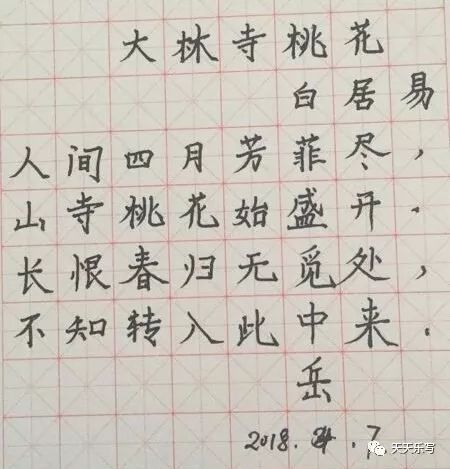 大林寺桃花
白居易
人间四月芳菲尽，
山寺桃花始盛开.
长恨春归无觅处，
不知转入此中来.
岳
2018.4.7
天天乐写